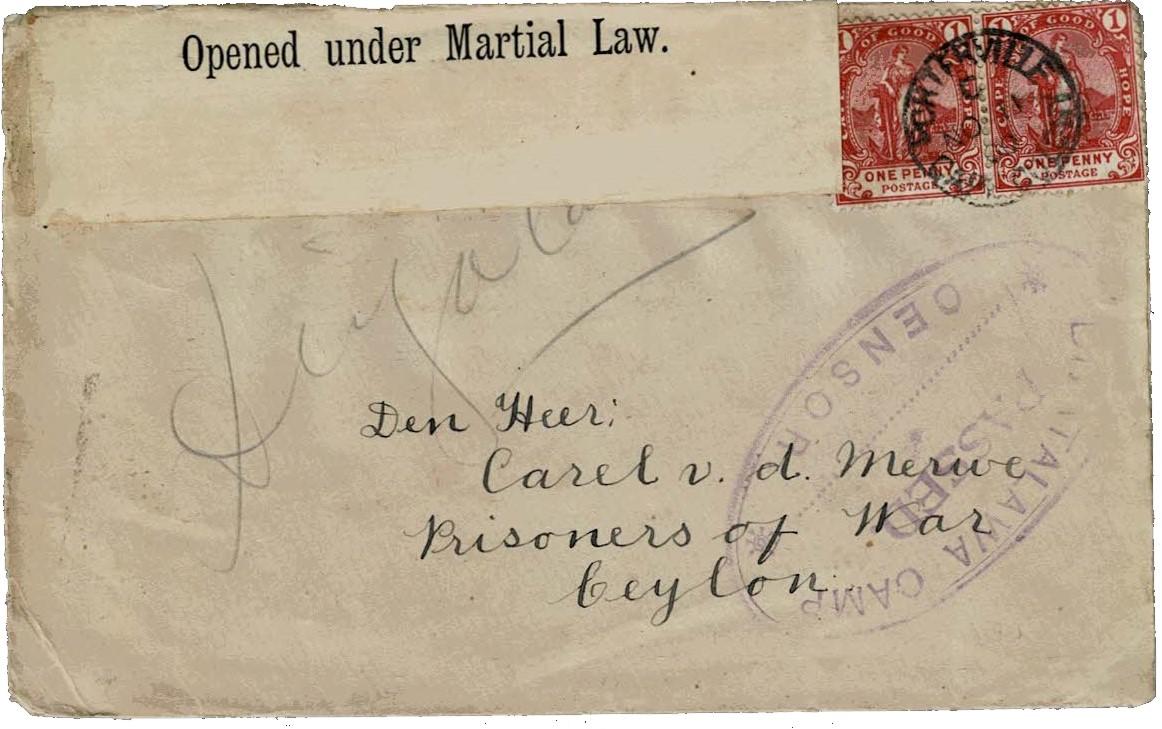 Opened under Martial Law.
1 OF GOOD 1
HOPE
ONE PENNY
POSTAGE
1 OF GOOD 1
CAPE
HOPE
ONE PENNY
POSTAGE
PORTERVILLE
Den Heer:
Carel v. d. Merwe
Prisoners of War
Ceylon.
CENSOR
PASSED
CAMP